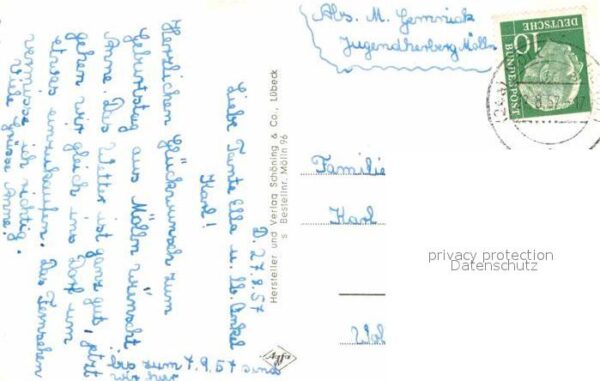 Abs. M. Gemmrick
Jugendherberg Mölln
10
DEUTSCHE
BUNDESPOST
D. 27.8.57
Liebe Tante Ella u. lb. Onkel
Karl!
Herzlichen Glückwunsch zum
Geburtstag aus Mölln wünscht
Anne. Das Wetter ist ganz gut, jetzt
gehen wir gleich ins Dorf um
etwas einzukaufen. Das Fernsehen
vermisse ich richtig.
Viele Grüsse Anne.
Bis zum 7.9.57 sind
wir hier
Hersteller und Verlag Schöning & Co., Lübeck
s Bestellnr. Mölln 96
Familie
Karl
privacy protection
Datenschutz